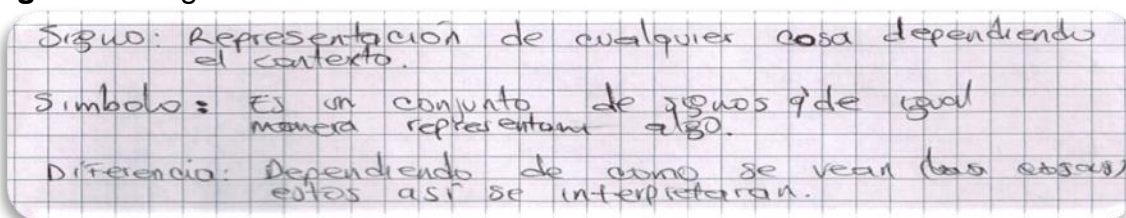 Signo: Representación de cualquier cosa dependiendo
el contexto.
Simbolo: Es un conjunto de signos q' de igual
manera representan algo.
Diferencia: Dependiendo de como se vean (las cosas)
estos así se interpretaran.